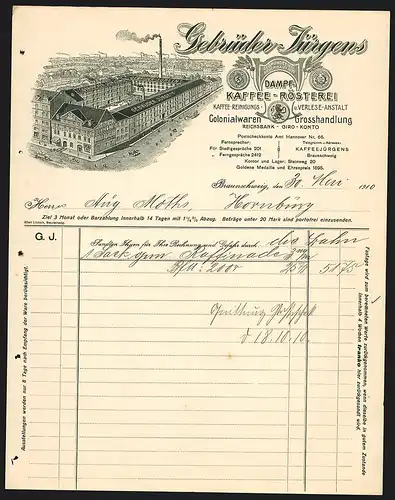 Gebrüder Jürgens
DAMPF-
KAFFEE-RÖSTEREI
KAFFEE-REINIGUNGS u. VERLESE-ANSTALT
Colonialwaren Grosshandlung
REICHSBANK-GIRO-KONTO
Postscheckkonto Amt Hannover Nr. 65.
Fernsprecher: Telegramm-Adresse:
Für Stadtgespräche 201 KAFFEEJÜRGENS
„ Ferngespräche 2412 Braunschweig
Kontor und Lager: Steinweg 20
Goldene Medaille und Ehrenpreis 1895.
Braunschweig, den 30. 1910
Herrn Aug Moths, Hornburg
Ziel 3 Monat oder Barzahlung innerhalb 14 Tagen mit 1½% Abzug. Beträge unter 20 Mark sind portofrei einzusenden.
G. J.
Sandten Ihnen für Ihre Rechnung und Gefahr durch die Bahn
1 Sack gem Raffinade
51 75
d 18.10.10
Ausstellungen werden nur 8 Tage nach Empfang der Ware berücksichtigt.
Fastage wird zum berechneten Werte zurückgenommen, wenn dieselbe in gutem Zustande
innerhalb 4 Wochen franko hier zurückgesandt wird.